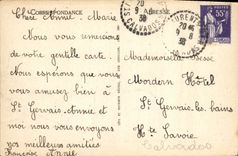 CORRESPONDANCE
Chère Annie-Marie
Nous vous remercions
de votre gentille carte.
Nous espérons que vous
vous amusez bien à
St Gervais. Annie et
moi nous vous envoyons
nos meilleures amitiés
Françoise
55c
20
9
38
CALVADOS
Mademoiselle
Mordern Hôtel
St Gervais. les bains
Hte Savoie
Calvados